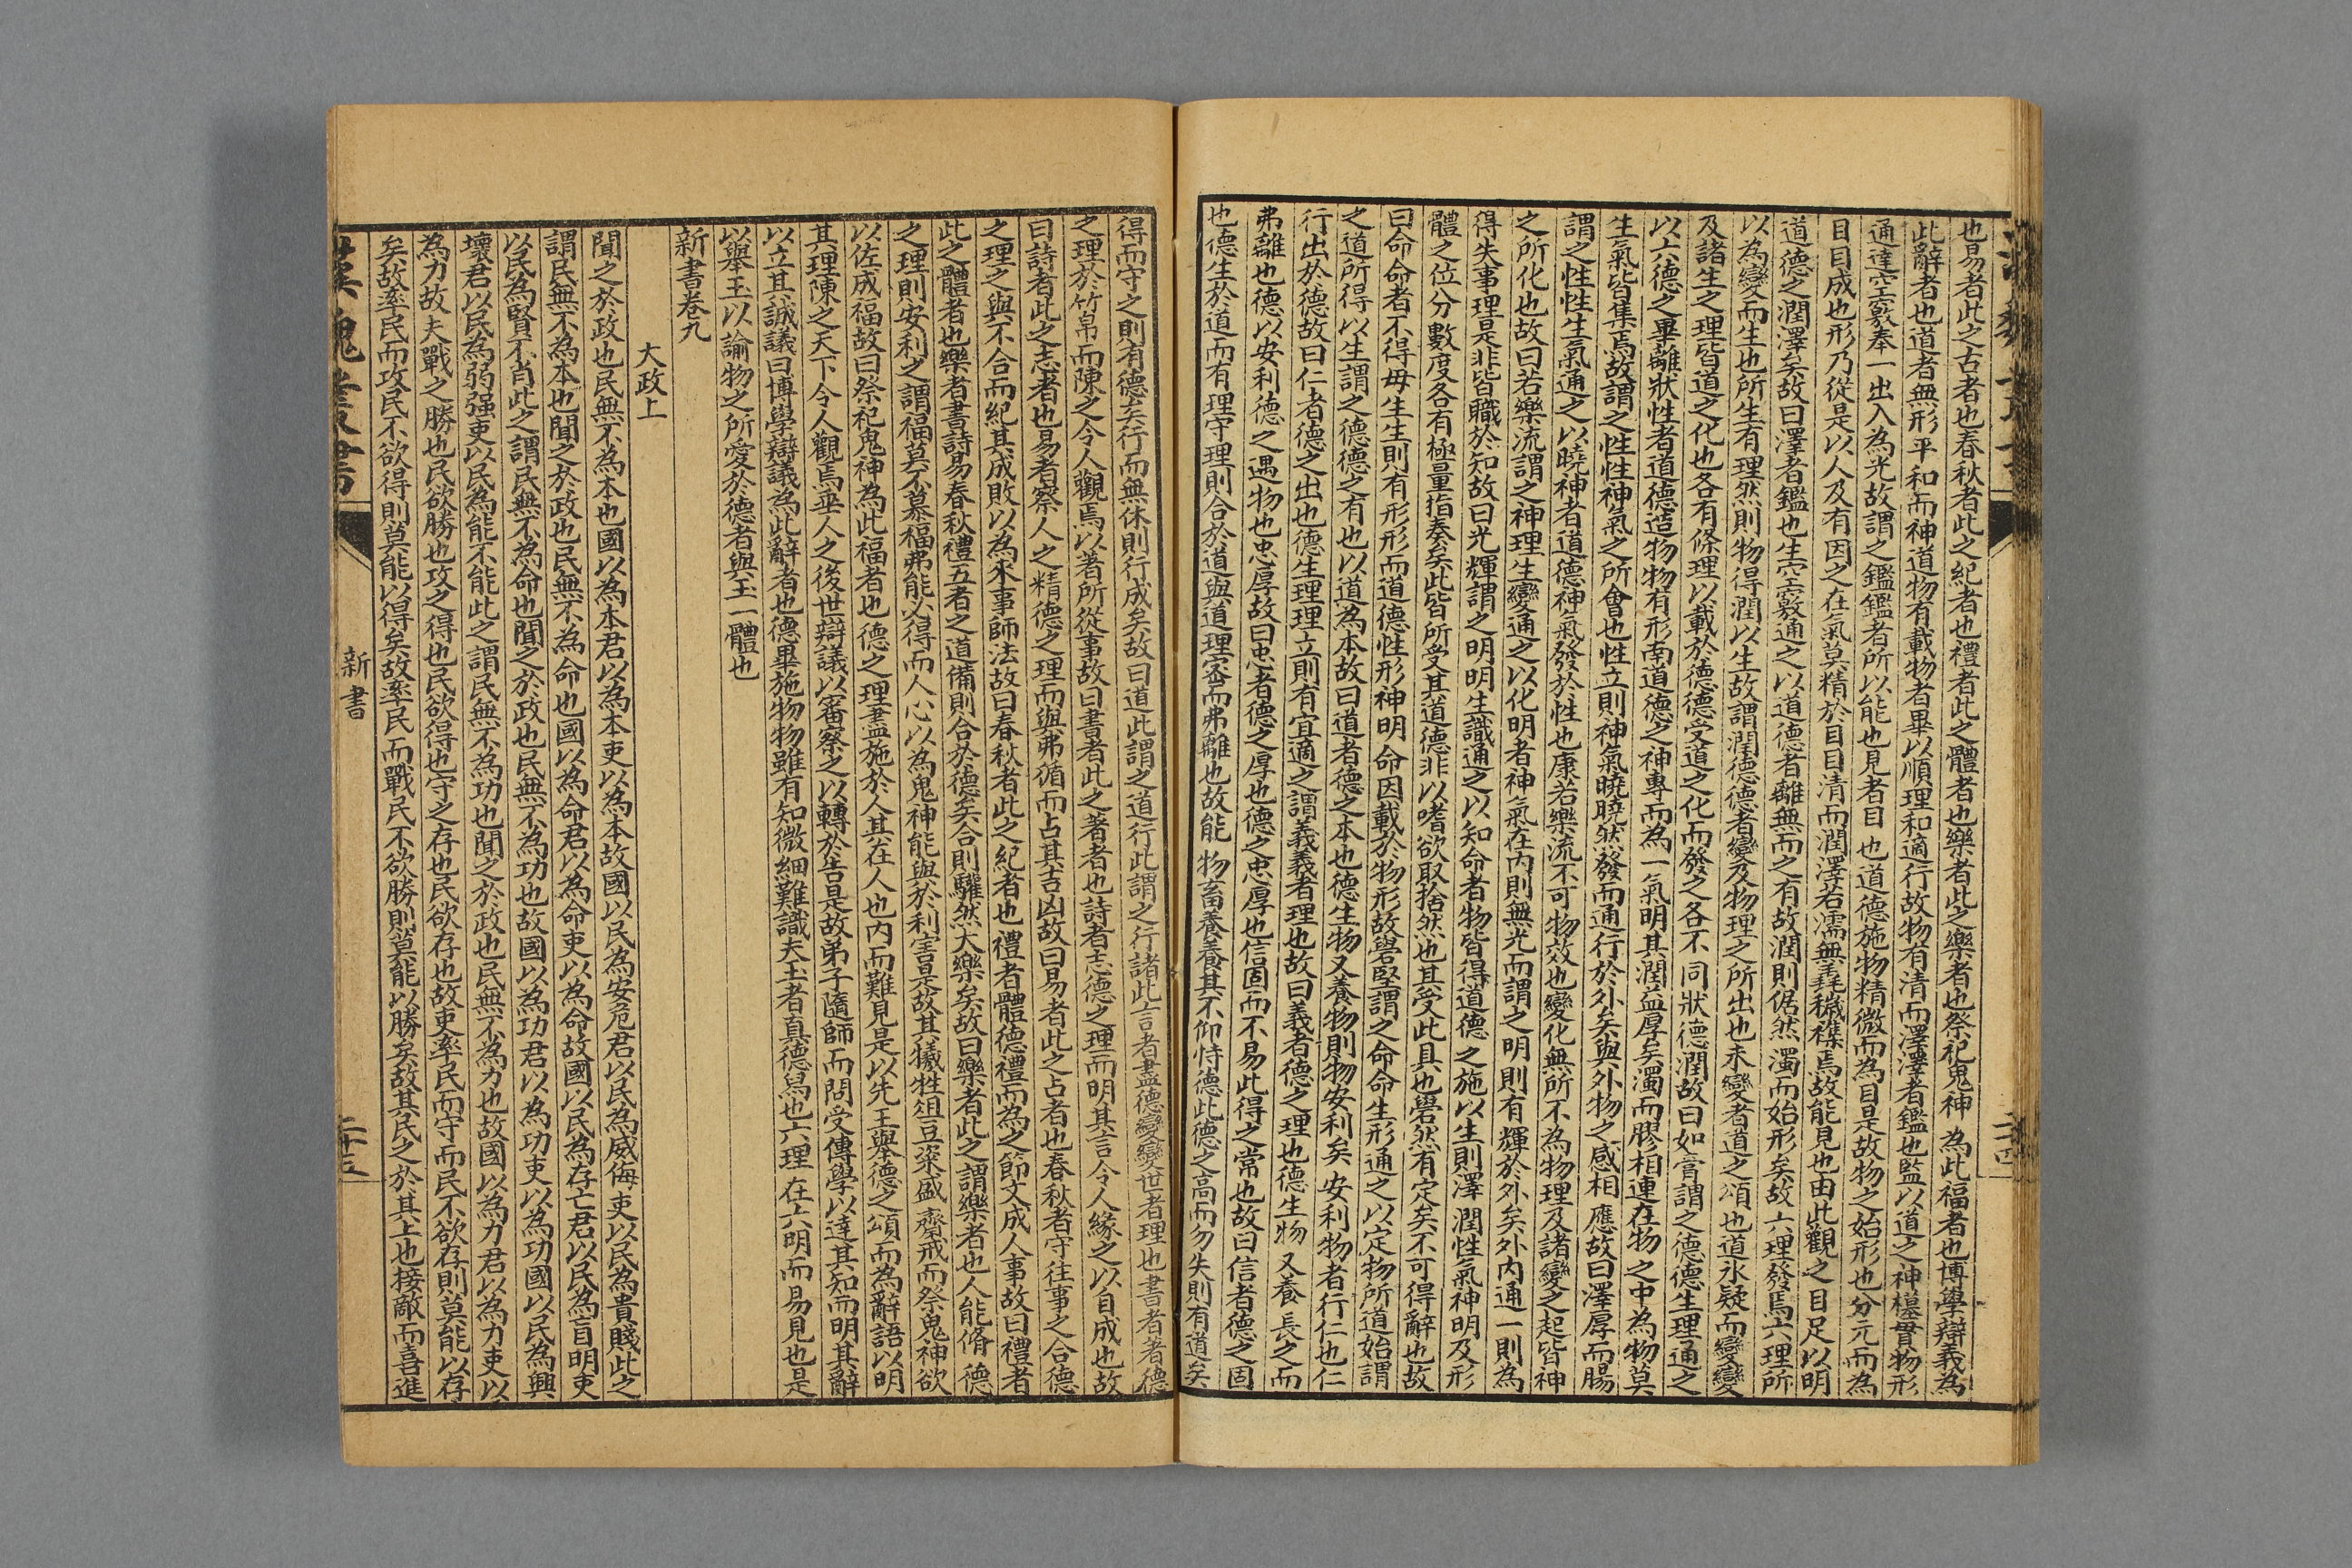 也易者此之古者也春秋者此之紀者也禮者此之體者也樂者此之樂者也祭祀鬼神為此福者也博學辯義為
此辭者也道者無形平和而神道物有載物者畢以順理和適行故物有清而澤澤者鑑也監以道之神模貫物形
通達空竅奉一出入為光故謂之鑑鑑者所以能也見者目也道德施物精微而為目是故物之始形也分元而為
目目成也形乃從是以人及有因之在氣莫精於目目清而潤澤若濡無毳穢襍焉故能見也由此觀之目足以明
道德之潤澤矣故曰澤者鑑也生空竅通之以道德者離無而之有故潤則倨然濁而始形矣故六理發焉六理所
以為變而生也所生有理然則物得潤以生故謂潤德德者變及物理之所出也未變者道之頌也道氷疑而變變
及諸生之理皆道之化也各有條理以載於德德受道之化而發之各不同狀德潤故曰如膏謂之德德生理通之
以六德之畢離狀性者道德造物物有形而道德之神專而為一氣明其潤益厚矣濁而膠相連在物之中為物莫
生氣皆集焉故謂之性性神氣之所會也性立則神氣曉曉然發而通行於外矣與外物之感相應故曰澤厚而腸
謂之性性生氣通之以曉神者道德神氣發於性也康若樂流不可物效也變化無所不為物理及諸變之起皆神
之所化也故曰若樂流謂之神理生變通之以化明者神氣在內則無光而謂之明則有輝於外矣外內通一則為
得失事理是非皆職於知故曰光輝謂之明明生識通之以知命者物皆得道德之施以生則澤潤性氣神明及形
體之位分數度各有極量指奏矣此皆所受其道德非以嗜欲取捨然也其受此具也礐然有定矣不可得辭也故
曰命命者不得毋生生則有形形而道德性形神明命因載於物形故礐堅謂之命命生形通之以定物所道始謂
之道所得以生謂之德德之有也以道為本故曰道者德之本也德生物又養物則物安利矣安利物者行仁也仁
行出於德故曰仁者德之出也德生理理立則有宜適之謂義義者理也故曰義者德之理也德生物又養長之而
弗離也德以安利德之遇物也忠厚故曰忠者德之厚也德之忠厚也信固而不易此得之常也故曰信者德之固
也德生於道而有理守理則合於道與道理密而弗離也故能物畜養養其不仰恃德此德之高而勿失則有道矣
二十四
得而守之則有德矣行而無休則行成矣故曰道此謂之道行此謂之行諸此言者盡德變變世者理也書者著德
之理於竹帛而陳之令人觀焉以著所從事故曰書者此之著者也詩者志德之理而明其言令人緣之以自成也故
曰詩者此之志者也易者察人之精德之理而與弗循而占其吉凶故曰易者此之占者也春秋者守往事之合德
之理之與不合而紀其成敗以為來事師法故曰春秋者此之紀者也禮者體德禮而為之節文成人事故曰禮者
此之體者也樂者書詩易春秋禮五者之道備則合於德矣合則驩然大樂矣故曰樂者此之謂樂者也人能脩德
之理則安利之謂福莫不慕福弗能必得而人心以為鬼神能與於利害是故其犧牲俎豆粢盛齋戒而祭鬼神欲
以佐成福故曰祭祀鬼神為此福者也德之理盡施於人其在人也內而難見是以先王舉德之頌而為辭語以明
其理陳之天下令人觀焉垂人之後世辯議以審察之以轉於告是故弟子隨師而問受傳學以達其知而明其辭
以立其誠議曰博學辯議為此辭者也德畢施物物雖有知微細難識夫玉者真德舄也六理在六明而易見也是
以舉玉以諭物之所愛於德者與玉一體也
新書卷九
大政上
聞之於政也民無不為本也國以為本君以為本吏以為本故國以民為安危君以民為威侮吏以民為貴賤此之
謂民無不為本也聞之於政也民無不為命也國以為命君以為命吏以為命故國以民為存亡君以民為盲明吏
以民為賢不肖此之謂民無不為命也聞之於政也民無不為功也故國以為功君以為功吏以為功國以民為興
壞君以民為弱強吏以民為能不能此之謂民無不為功也聞之於政也民無不為力也故國以為力君以為力吏以
為力故夫戰之勝也民欲勝也攻之得也民欲得也守之存也民欲存也故吏率民而守而民不欲存則莫能以存
矣故率民而攻民不欲得則莫能以得矣故率民而戰民不欲勝則莫能以勝矣故其民之於其上也接敵而喜進
漢魏叢書
新書
二十五